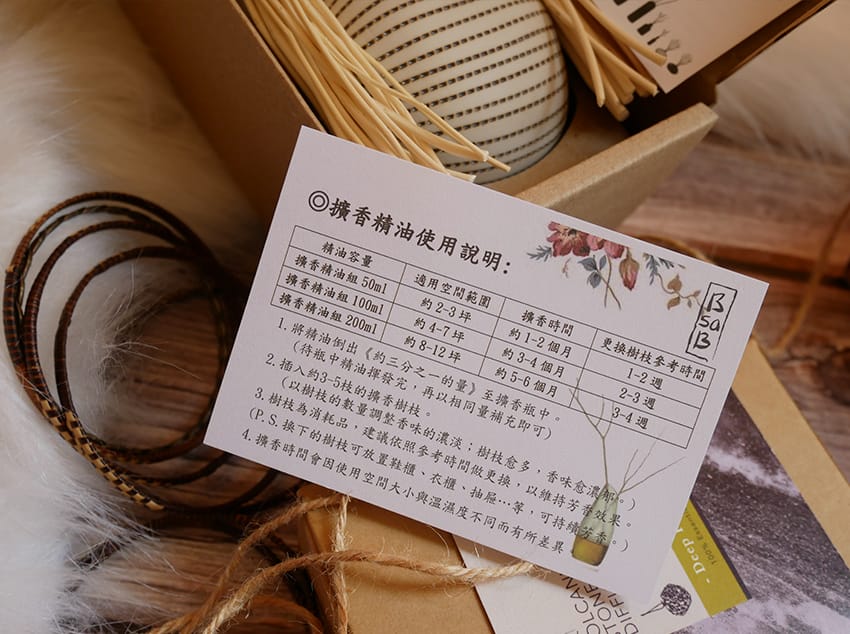 ◎擴香精油使用說明：
BsaB
精油容量 適用空間範圍 擴香時間 更換樹枝參考時間
擴香精油組 50ml 約 2-3 坪 約 1-2 個月 1-2 週
擴香精油組 100ml 約 4-7 坪 約 3-4 個月 2-3 週
擴香精油組 200ml 約 8-12 坪 約 5-6 個月 3-4 週
1. 將精油倒出《約三分之一的量》至擴香瓶中。
(待瓶中精油揮發完，再以相同量補充即可)
2. 插入約3-5枝的擴香樹枝。
(以樹枝的數量調整香味的濃淡：樹枝愈多，香味愈濃郁。)
3. 樹枝為消耗品，建議依照參考時間做更換，以維持芳香效果。
(P.S. 換下的樹枝可放置鞋櫃、衣櫃、抽屜…等，可持續芳香。)
4. 擴香時間會因使用空間大小與溫濕度不同而有所差異
- Deep
100% Essenti
OLCAN
TONE
DIFF